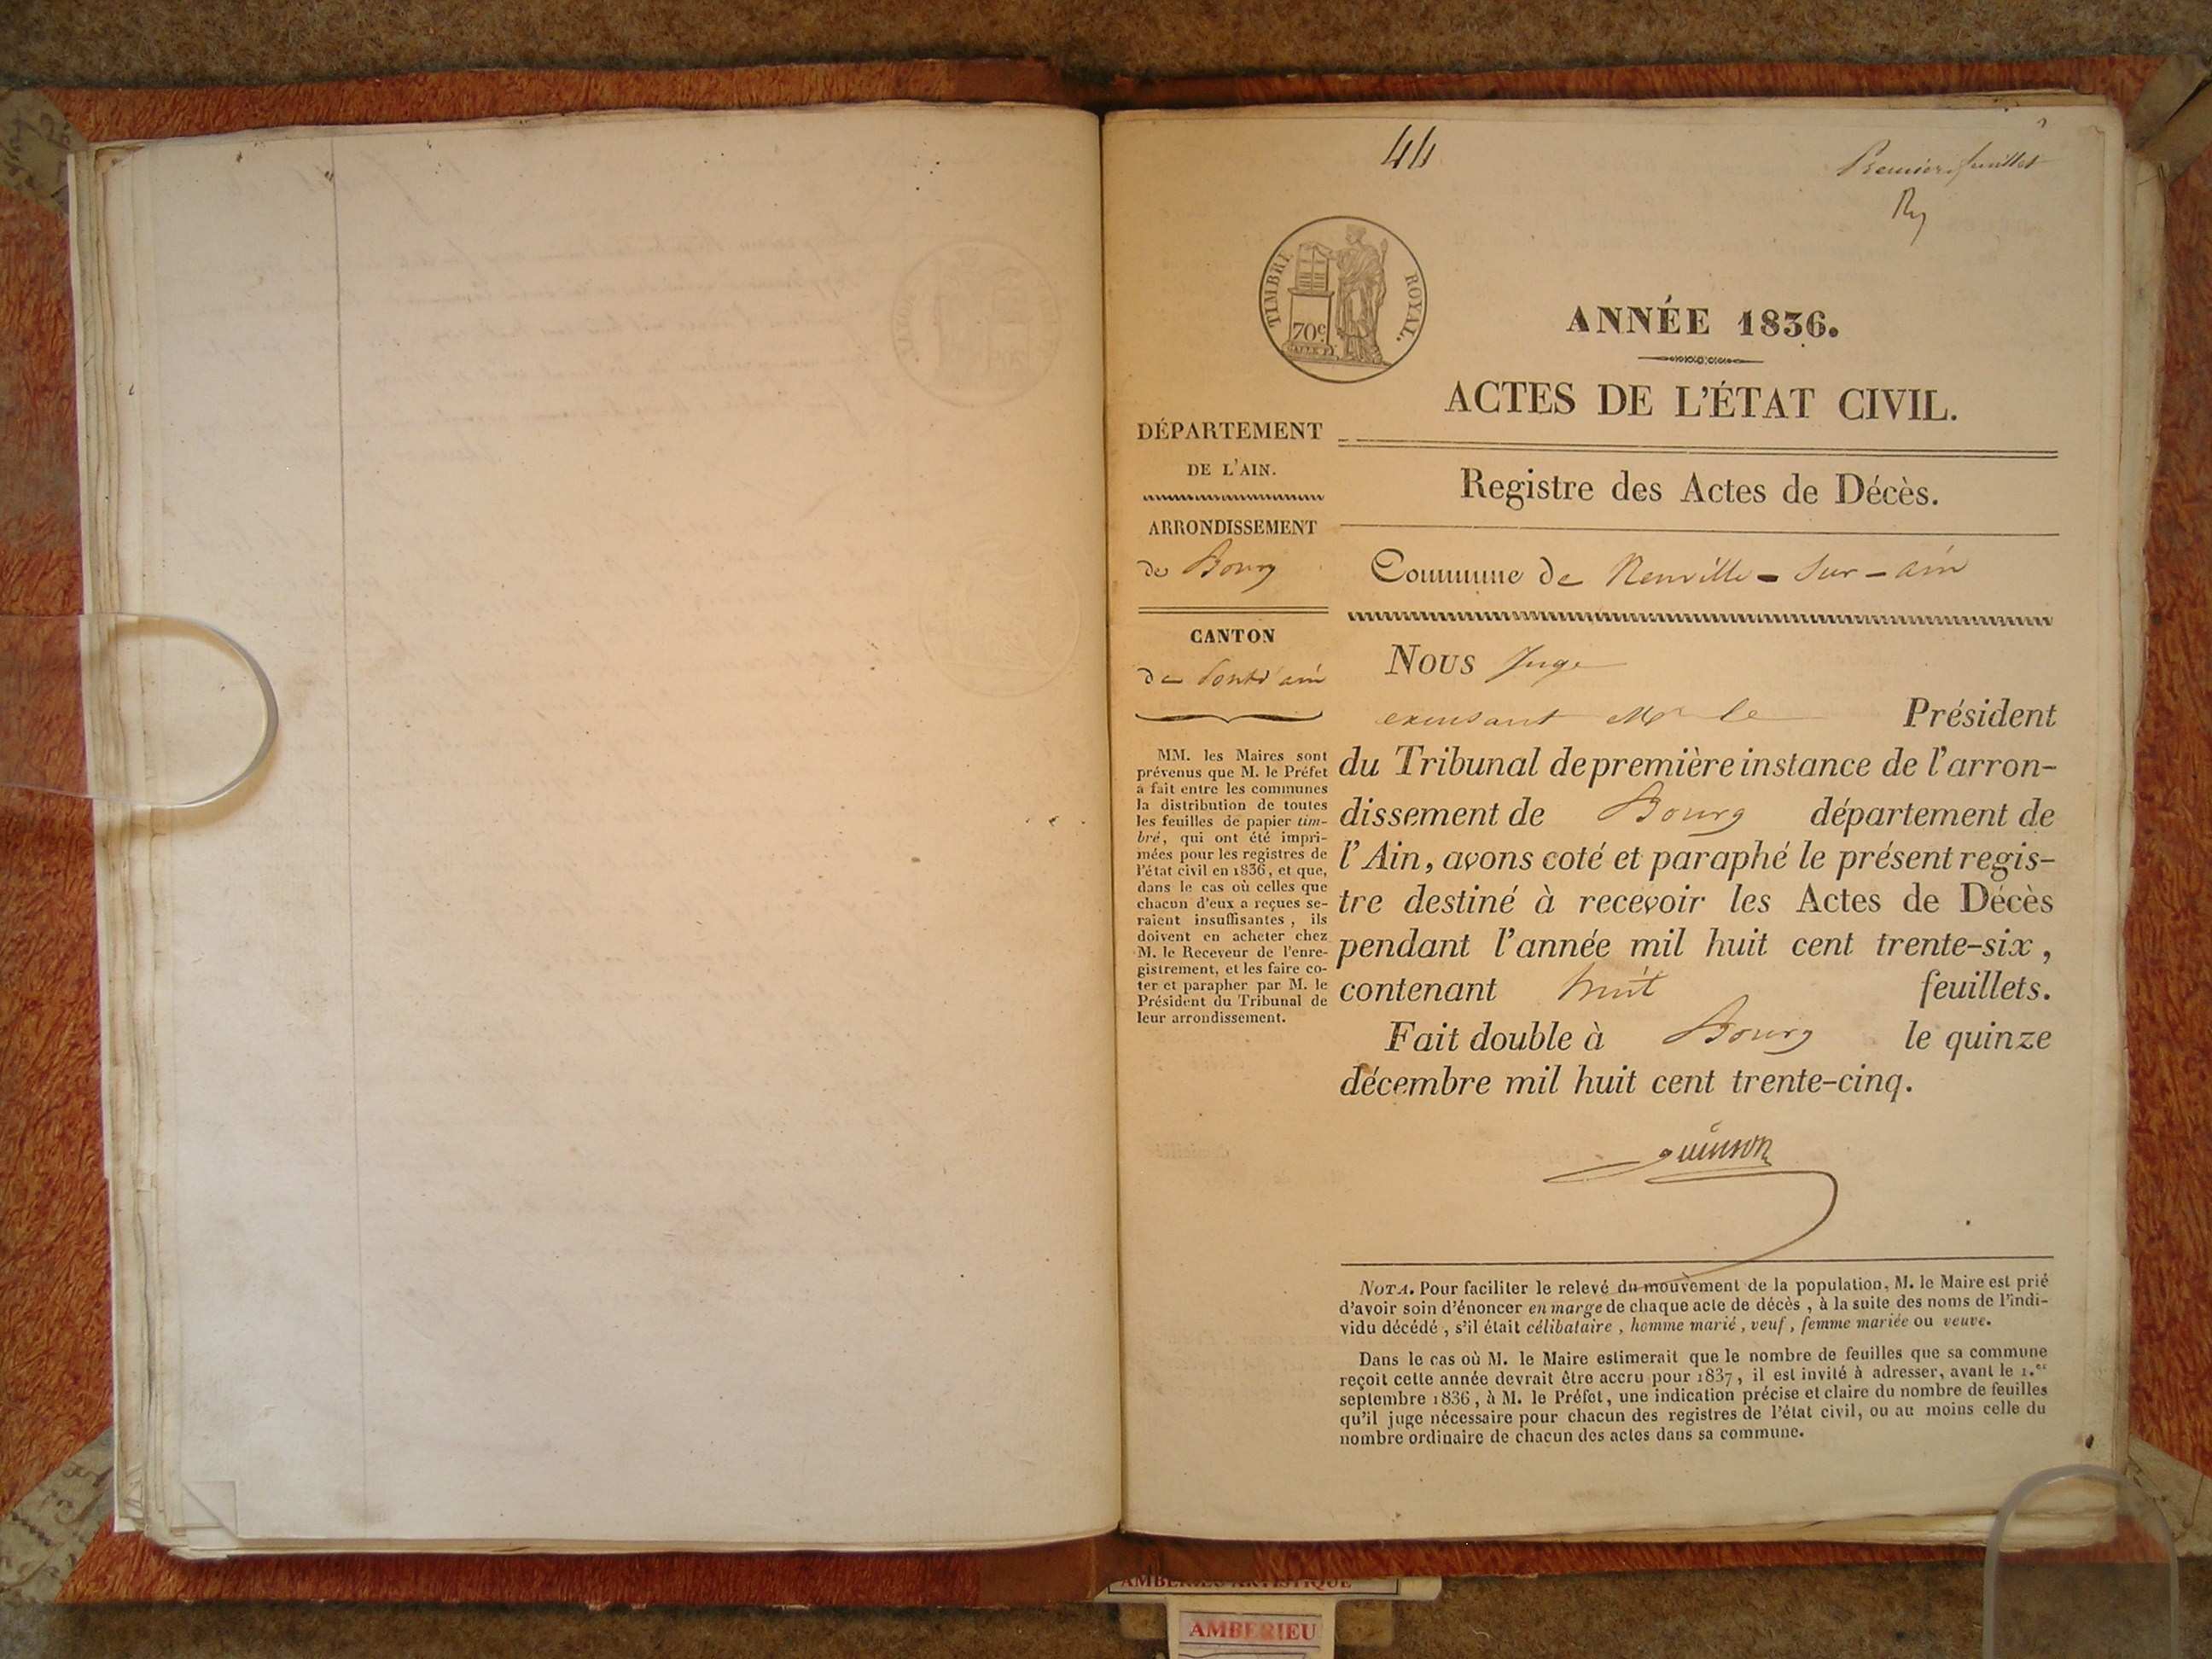 44
Premier feuillet
TIMBRE ROYAL.
70c
ANNÉE 1836.
ACTES DE L'ÉTAT CIVIL.
DÉPARTEMENT
DE L'AIN.
Registre des Actes de Décès.
ARRONDISSEMENT
de Bourg
Commune de Neuville-sur-ain
CANTON
de Pont d'ain
MM. les Maires sont
prévenus que M. le Préfet
a fait entre les communes
la distribution de toutes
les feuilles de papier tim-
bré, qui ont été impri-
mées pour les registres de
l'état civil en 1836, et que,
dans le cas où celles que
chacun d'eux a reçues se-
raient insuffisantes, ils
doivent en acheter chez
M. le Receveur de l'enre-
gistrement, et les faire co-
ter et parapher par M. le
Président du Tribunal de
leur arrondissement.
Nous Juge
excusant Mr le Président
du Tribunal de première instance de l'arron-
dissement de Bourg département de
l'Ain, avons coté et paraphé le présent regis-
tre destiné à recevoir les Actes de Décès
pendant l'année mil huit cent trente-six,
contenant huit feuillets.
Fait double à Bourg le quinze
décembre mil huit cent trente-cinq.
Quinson
NOTA. Pour faciliter le relevé du mouvement de la population, M. le Maire est prié
d'avoir soin d'énoncer en marge de chaque acte de décès, à la suite des noms de l'indi-
vidu décédé, s'il était célibataire, homme marié, veuf, femme mariée ou veuve.
Dans le cas où M. le Maire estimerait que le nombre de feuilles que sa commune
reçoit cette année devrait être accru pour 1837, il est invité à adresser, avant le 1.er
septembre 1836, à M. le Préfet, une indication précise et claire du nombre de feuilles
qu'il juge nécessaire pour chacun des registres de l'état civil, ou au moins celle du
nombre ordinaire de chacun des actes dans sa commune.
AMBERIEU